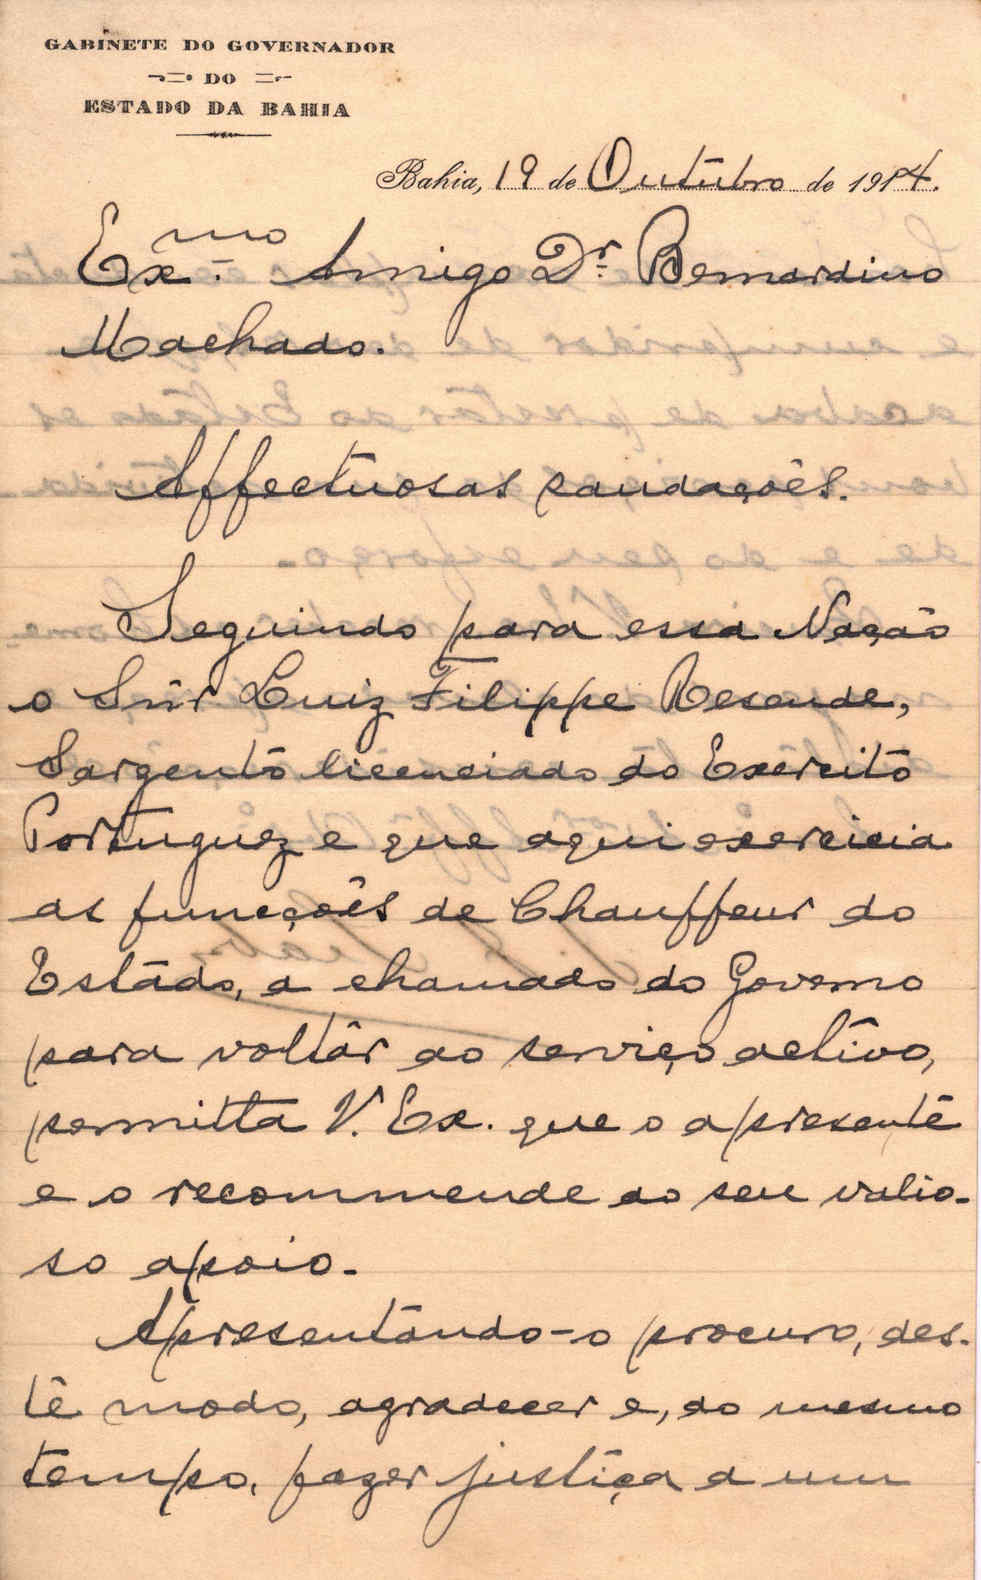 GABINETE DO GOVERNADOR
DO
ESTADO DA BAHIA
Bahia, 19 de Outubro de 1914.
Exmo. Amigo Dr. Bernardino
Machado.
Affectuosas saudações.
Seguindo para essa Nação
o Snr Luiz Filippe Resende,
Sargento licenciado do Exercito
Portuguez e que aqui exercicia
as funcções de Chauffeur do
Estado, a chamado do Governo
para voltar ao serviço activo,
permitta V. Ex. que o apresente
e o recommende ao seu valio-
so apoio.-
Apresentando-o procuro, des-
te modo, agradecer e, ao mesmo
tempo, fazer justiça a um